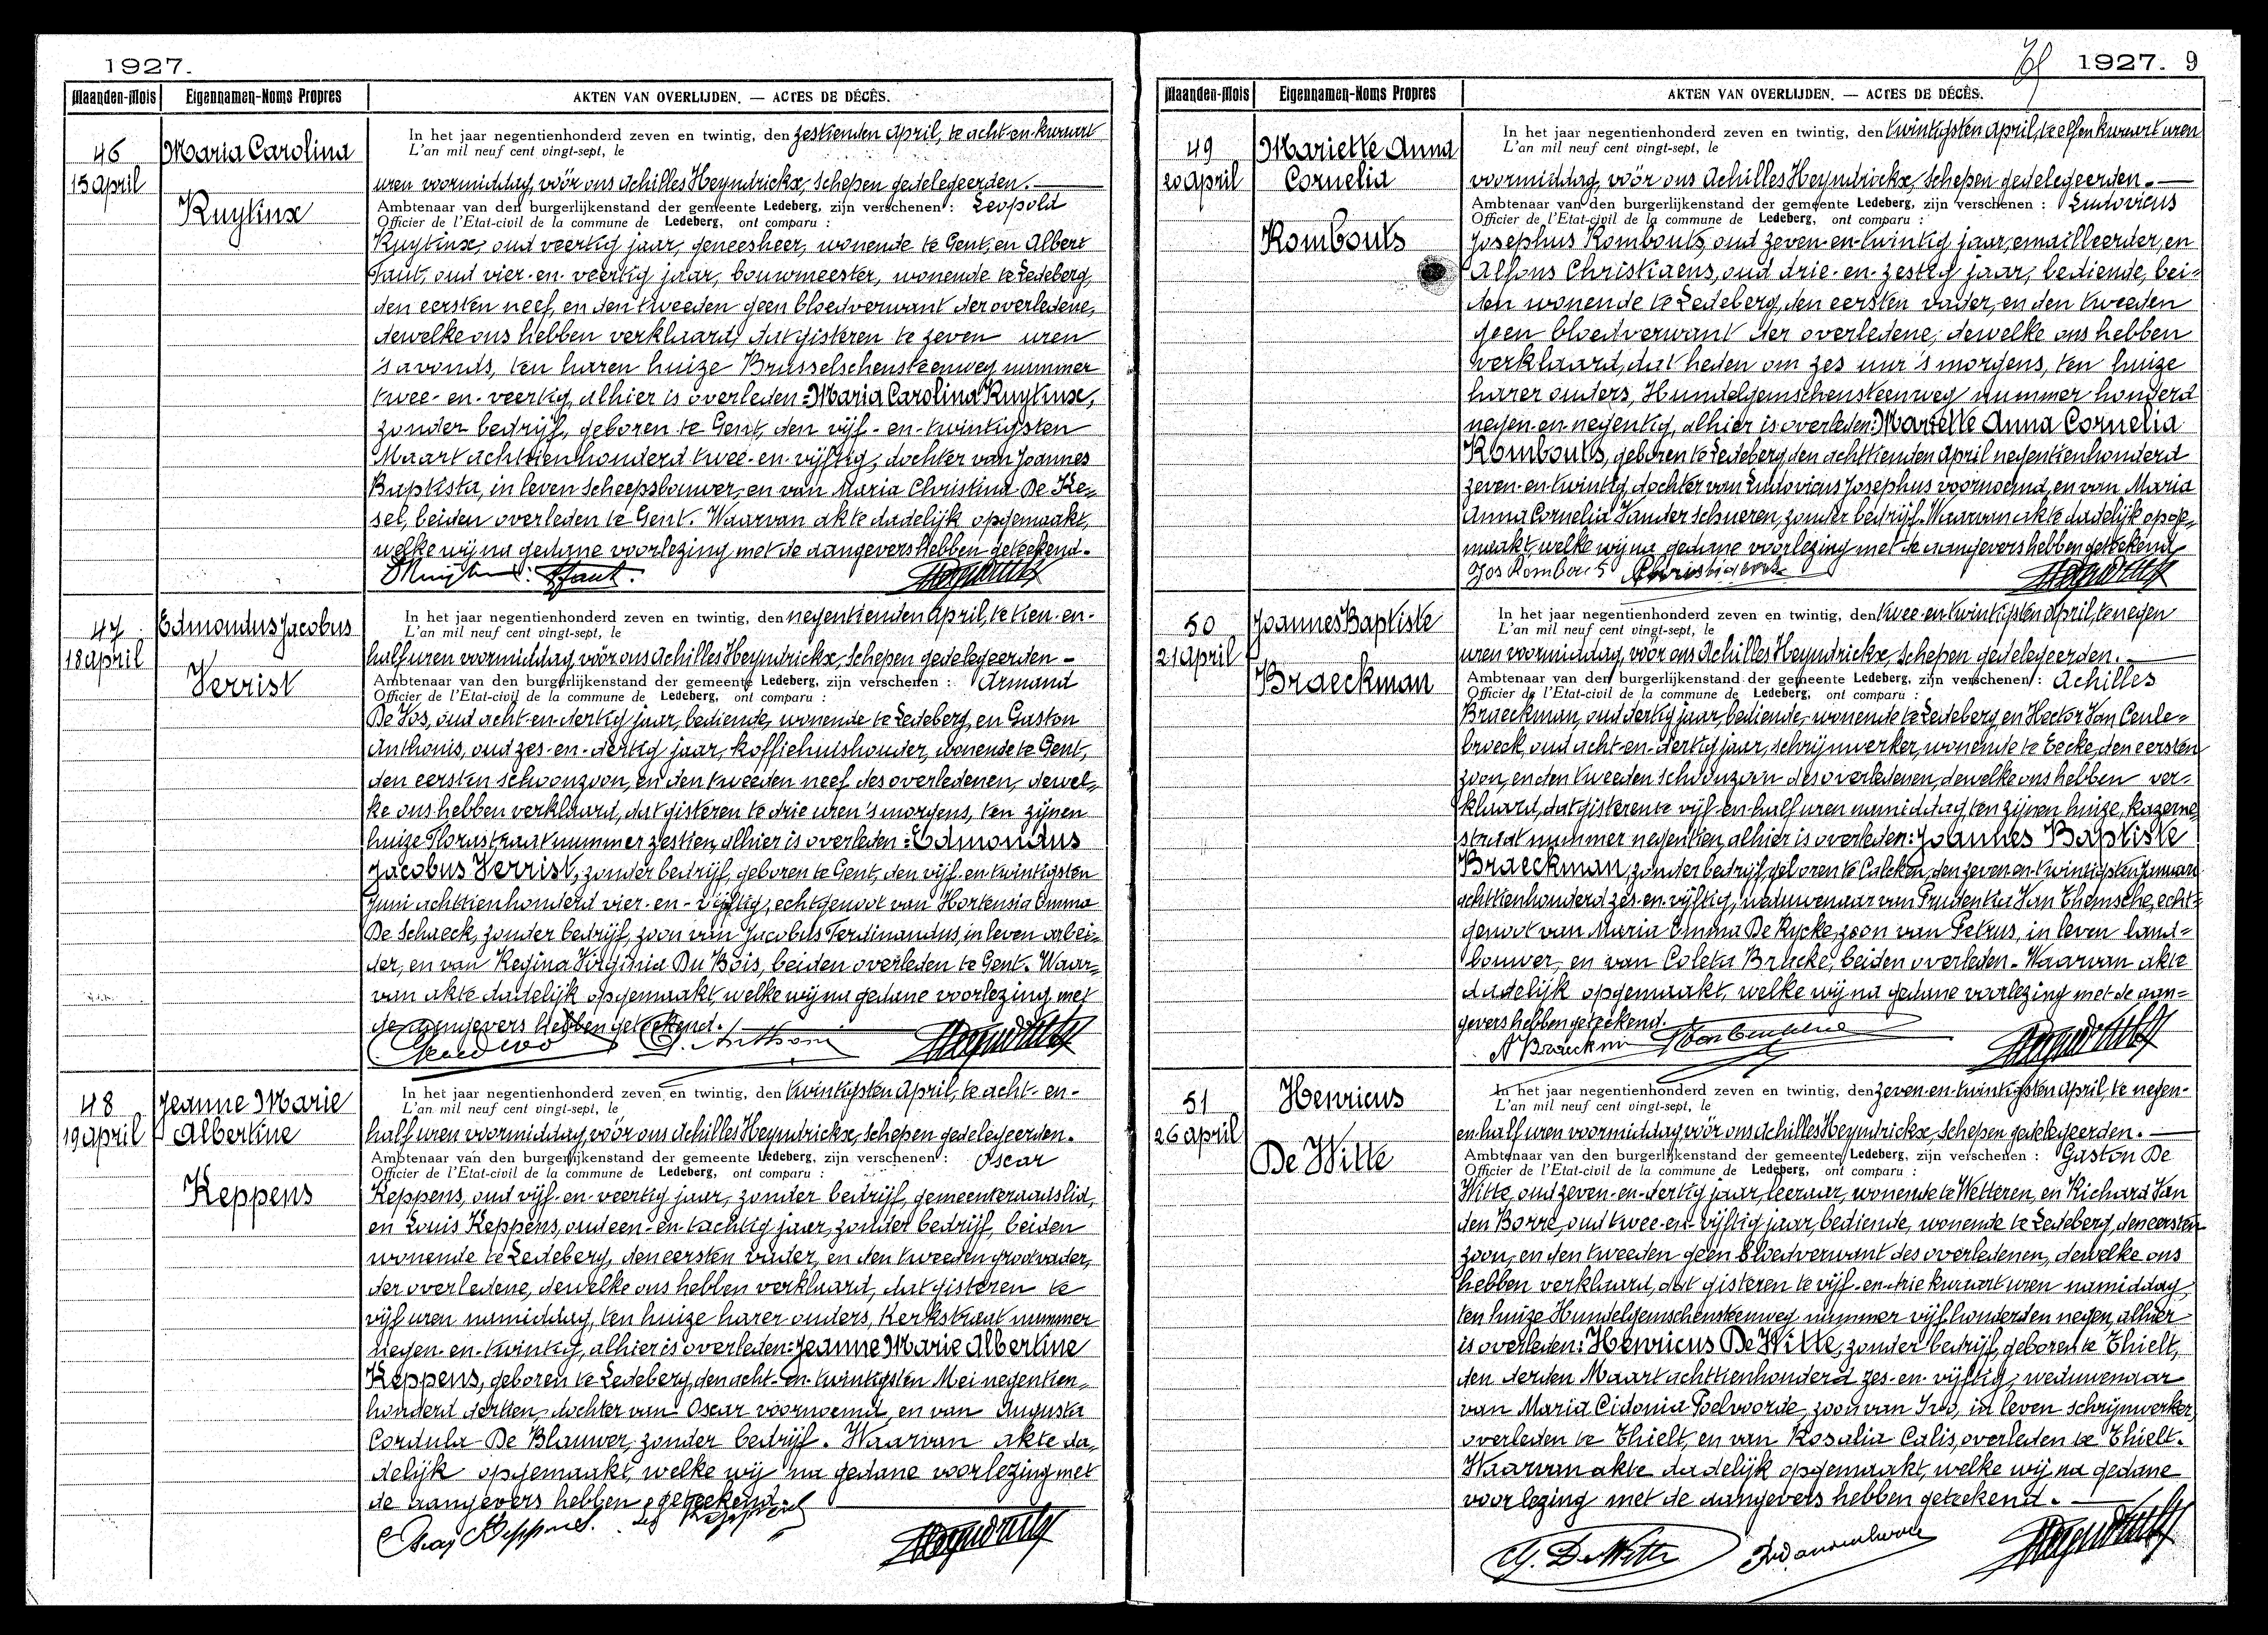 1927.
Maanden-Mois Eigennamen-Noms Propres AKTEN VAN OVERLIJDEN. — ACTES DE DÉCÈS.
46
15 april
Maria Carolina
Ruytinx
In het jaar negentienhonderd zeven en twintig, den zestienden April, te acht en kwaart
L'an mil neuf cent vingt-sept, le
uren voormiddag, vóór ons Achilles Heyndrickx, Schepen gedelegeerden.
Ambtenaar van den burgerlijkenstand der gemeente Ledeberg, zijn verschenen : Leopold
Officier de l'Etat-civil de la commune de Ledeberg, ont comparu :
Ruytinx, oud veertig jaar, geneesheer, wonende te Gent, en Albert
oud vier-en-veertig jaar, bouwmeester, wonende te Ledeberg,
den eersten neef, en den tweeden geen bloedverwant der overledene,
dewelke ons hebben verklaard, dat gisteren te zeven uren
's avonds, ten haren huize Brusselschensteenweg nummer
twee-en-veertig, alhier is overleden: Maria Carolina Ruytinx,
zonder bedrijf, geboren te Gent, den vijf-en-twintigsten
Maart achttienhonderd twee-en-vijftig, dochter van Joannes
Baptista, in leven scheepsbouwer, en van Maria Christina De Ke=
sel, beiden overleden te Gent. Waarvan akte dadelijk opgemaakt,
welke wij na gedane voorlezing met de aangevers hebben geteekend.
47
18 april
Edmondus Jacobus
Verrist
In het jaar negentienhonderd zeven en twintig, den negentienden April, te tien-en-
L'an mil neuf cent vingt-sept, le
half uren voormiddag, vóór ons Achilles Heyndrickx, Schepen gedelegeerden -
Ambtenaar van den burgerlijkenstand der gemeente Ledeberg, zijn verschenen : Armand
Officier de l'Etat-civil de la commune de Ledeberg, ont comparu :
De Vos, oud acht-en-dertig jaar, bediende, wonende te Ledeberg, en Gaston
Anthonis, oud zes-en-dertig jaar, koffiehuishouder, wonende te Gent,
den eersten schoonzoon, en den tweeden neef des overledenen, dewel=
ke ons hebben verklaard, dat gisteren te drie uren 's morgens, ten zijnen
huize Florastraat nummer zestien, alhier is overleden: Edmondus
Jacobus Verrist, zonder bedrijf, geboren te Gent, den vijf-en-twintigsten
Juni achttienhonderd vier-en-vijftig, echtgenoot van Hortensia Emma
De Schaeck, zonder bedrijf, zoon van Jacobus Ferdinandus, in leven arbei=
der, en van Regina Virginia Du Bois, beiden overleden te Gent. Waar=
van akte dadelijk opgemaakt, welke wij na gedane voorlezing met
de aangevers hebben geteekend.
48
19 april
Jeanne Marie
Albertine
Keppens
In het jaar negentienhonderd zeven en twintig, den twintigsten April, te acht-en-
L'an mil neuf cent vingt-sept, le
half uren voormiddag, vóór ons Achilles Heyndrickx, Schepen gedelegeerden.
Ambtenaar van den burgerlijkenstand der gemeente Ledeberg, zijn verschenen : Oscar
Officier de l'Etat-civil de la commune de Ledeberg, ont comparu :
Keppens, oud vijf-en-veertig jaar, zonder bedrijf, gemeenteraadslid,
en Louis Keppens, oud een-en-tachtig jaar, zonder bedrijf, beiden
wonende te Ledeberg, den eersten vader, en den tweeden grootvader,
der overledene, dewelke ons hebben verklaard, dat gisteren te
vijf uren namiddag, ten huize harer ouders, Kerkstraat nummer
negen-en-twintig, alhier is overleden: Jeanne Marie Albertine
Keppens, geboren te Ledeberg, den acht-en-twintigsten Mei negentien=
honderd dertien, dochter van Oscar voornoemd, en van Augusta
Cordula De Blauwer, zonder bedrijf. Waarvan akte da=
delijk opgemaakt, welke wij na gedane voorlezing met
de aangevers hebben geteekend.
1927. 9
Maanden-Mois Eigennamen-Noms Propres AKTEN VAN OVERLIJDEN. — ACTES DE DÉCÈS.
49
20 april
Mariette Anna
Cornelia
Rombouts
In het jaar negentienhonderd zeven en twintig, den twintigsten April, te elf en kwaart uren
L'an mil neuf cent vingt-sept, le
voormiddag, vóór ons Achilles Heyndrickx, Schepen gedelegeerden.
Ambtenaar van den burgerlijkenstand der gemeente Ledeberg, zijn verschenen : Ludovicus
Officier de l'Etat-civil de la commune de Ledeberg, ont comparu :
Josephus Rombouts, oud zeven-en-twintig jaar, emailleerder, en
Alfons Christiaens, oud drie-en-zestig jaar, bediende, bei=
den wonende te Ledeberg, den eersten vader, en den tweeden
geen bloedverwant der overledene, dewelke ons hebben
verklaard, dat heden om zes uur 's morgens, ten huize
harer ouders, Hundelgemschensteenweg nummer honderd
negen-en-negentig, alhier is overleden: Mariette Anna Cornelia
Rombouts, geboren te Ledeberg, den achttienden April negentienhonderd
zeven-en-twintig, dochter van Ludovicus Josephus voornoemd, en van Maria
Anna Cornelia Vander Schueren, zonder bedrijf. Waarvan akte dadelijk opge=
maakt, welke wij na gedane voorlezing met de aangevers hebben geteekend
Jos Rombouts Christiaens
50
21 april
Joannes Baptiste
Braeckman
In het jaar negentienhonderd zeven en twintig, den twee-en-twintigsten April, te negen
L'an mil neuf cent vingt-sept, le
uren voormiddag, vóór ons Achilles Heyndrickx, Schepen gedelegeerden.
Ambtenaar van den burgerlijkenstand der gemeente Ledeberg, zijn verschenen : Achilles
Officier de l'Etat-civil de la commune de Ledeberg, ont comparu :
Braeckman, oud dertig jaar, bediende, wonende te Ledeberg, en Hector Van Ceule=
broeck, oud acht-en-dertig jaar, schrijnwerker, wonende te Eecke, den eersten
zoon, en den tweeden schoonzoon des overledenen, dewelke ons hebben ver=
klaard, dat gisteren te vijf-en-half uren namiddag, ten zijnen huize, kazerne
straat nummer negentien, alhier is overleden: Joannes Baptiste
Braeckman, zonder bedrijf, geboren te Calcken, den zeven-en-twintigsten Januari
achttienhonderd zes-en-vijftig, weduwenaar van Prudentia Van Themsche, echt=
genoot van Maria Emma De Rycke, zoon van Petrus, in leven land=
bouwer, en van Coleta Bracke, beiden overleden. Waarvan akte
dadelijk opgemaakt, welke wij na gedane voorlezing met de aan=
gevers hebben geteekend.
A Braeckman
51
26 april
Henricus
De Witte
In het jaar negentienhonderd zeven en twintig, den zeven-en-twintigsten April, te negen-
L'an mil neuf cent vingt-sept, le
en-half uren voormiddag, vóór ons Achilles Heyndrickx, Schepen gedelegeerden.
Ambtenaar van den burgerlijkenstand der gemeente Ledeberg, zijn verschenen : Gaston De
Officier de l'Etat-civil de la commune de Ledeberg, ont comparu :
Witte, oud zeven-en-dertig jaar, leeraar, wonende te Wetteren, en Richard Van
den Borre, oud twee-en-vijftig jaar, bediende, wonende te Ledeberg, den eersten
zoon, en den tweeden geen bloedverwant des overledenen, dewelke ons
hebben verklaard, dat gisteren te vijf-en-drie kwaart uren namiddag,
ten huize Hundelgemschensteenweg nummer vijfhonderden negen, alhier
is overleden: Henricus De Witte, zonder bedrijf, geboren te Thielt,
den derden Maart achttienhonderd zes-en-vijftig, weduwenaar
van Maria Cidonia Poelvoorde, zoon van Ivo, in leven schrijnwerker,
overleden te Thielt, en van Rosalia Calis, overleden te Thielt.
Waarvan akte dadelijk opgemaakt, welke wij na gedane
voorlezing met de aangevers hebben geteekend.
G. De Witte